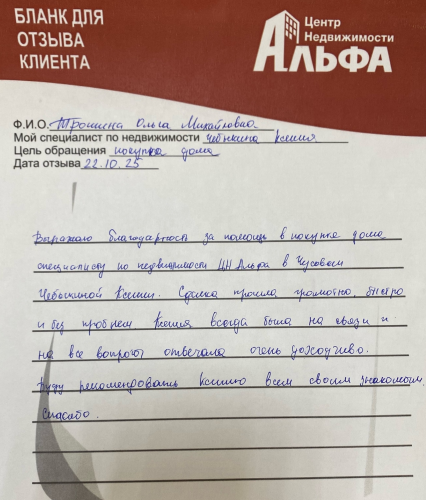 БЛАНК ДЛЯ
ОТЗЫВА
КЛИЕНТА
Центр
Недвижимости
АЛЬФА
Ф.И.О. Трошина Ольга Михайловна
Мой специалист по недвижимости Чебыкина Ксения
Цель обращения покупка дома
Дата отзыва 22.10.25
Выражаю благодарность за помощь в покупке дома
специалисту по недвижимости ЦН Альфа в Чусовом
Ксении. Сделка прошла грамотно, быстро
и без проблем Ксения всегда была на связи и
на все вопросы отвечала очень доходчиво.
Буду рекомендовать Ксению всем своим знакомым.
Спасибо.